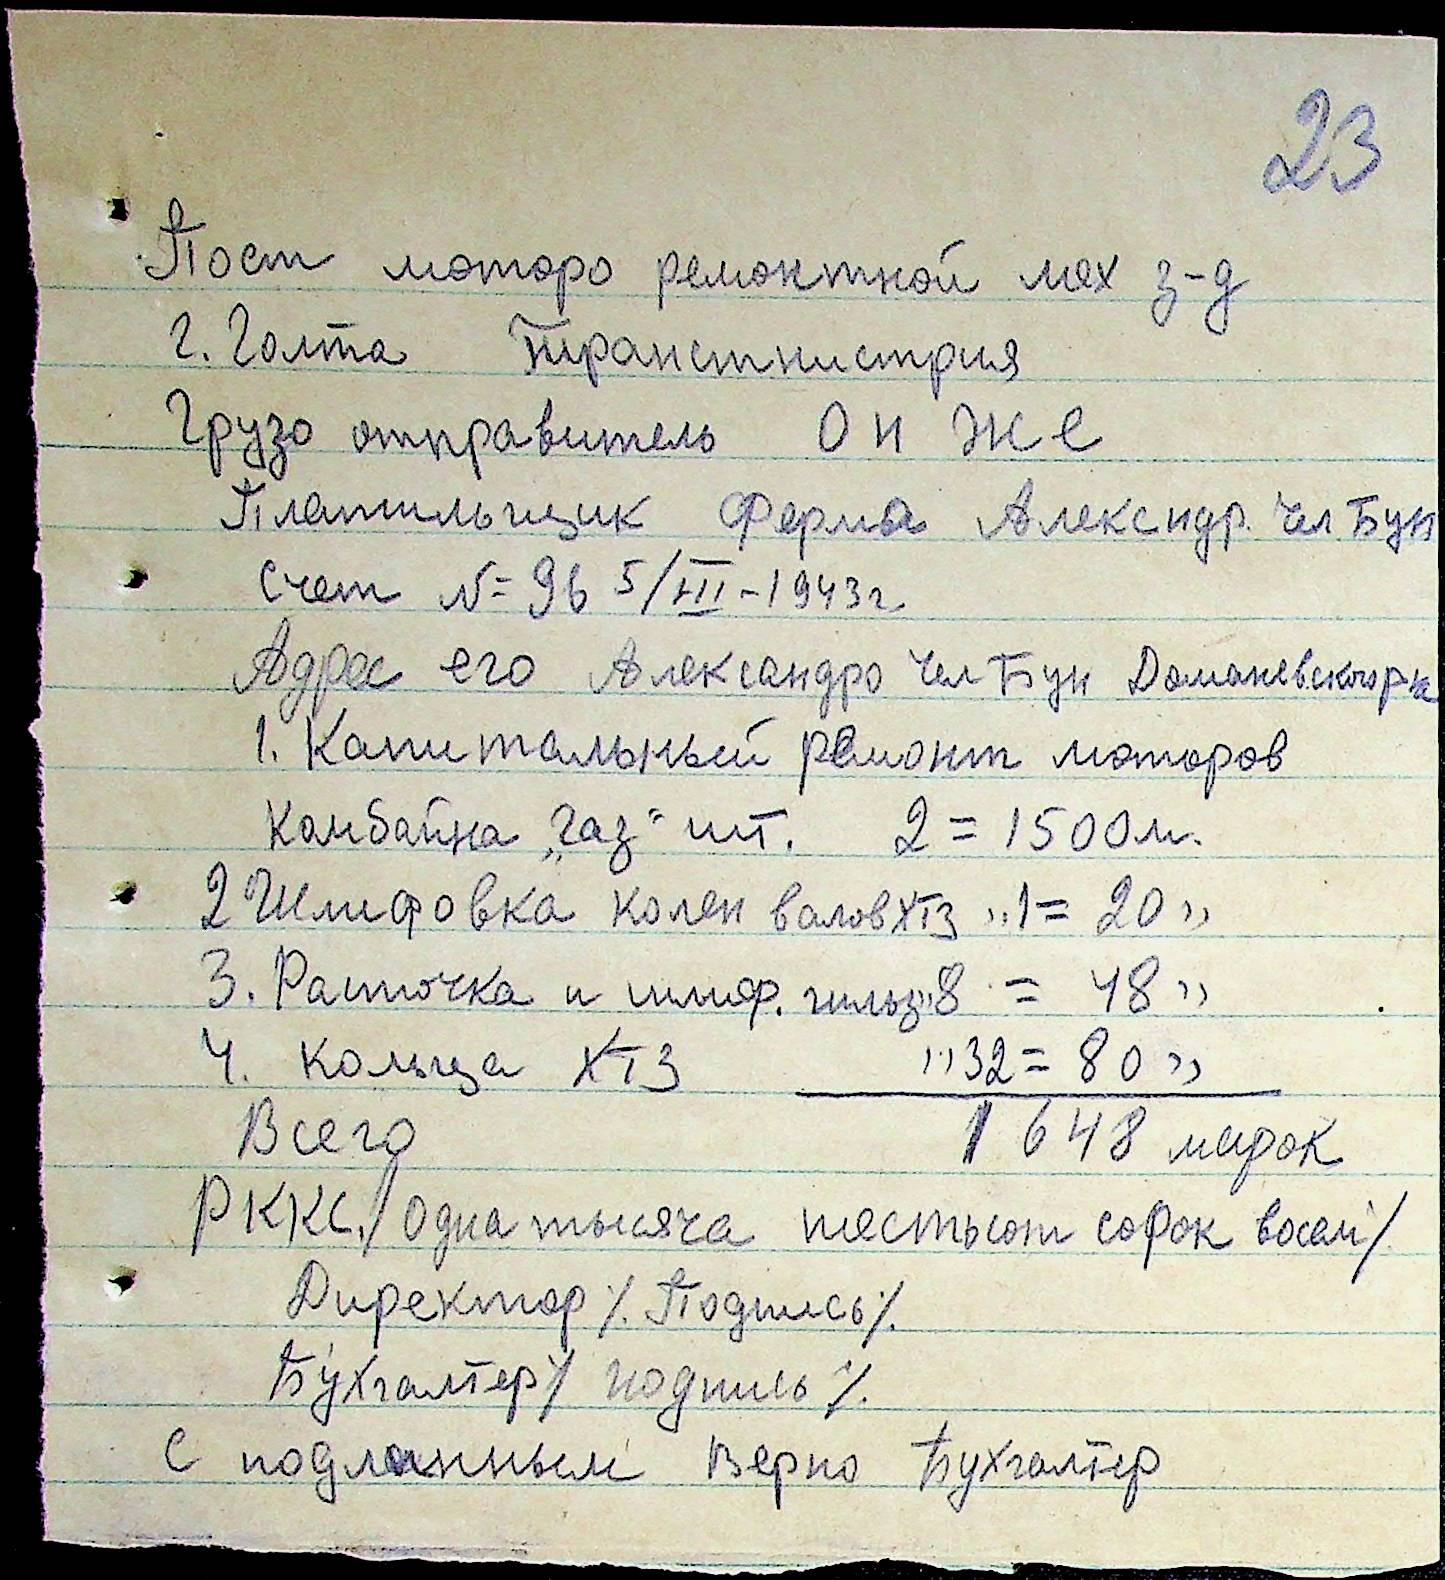 23
Пост моторо ремонтной мех з-д
г. Голта Транстнистрия
Грузо отправитель он же
Платильщик Ферма Александр. Чел Бун
Счет N= 96 5/III-1943г
Адрес его Александро Чел Бун Доманевского р-на
1. Капитальный ремонт моторов
Комбайна „Газ“ шт. 2 = 1500м.
2 Шлифовка колен валов ХТЗ „1 = 20 „
3. Расточка и шлиф. гильз „8 = 48 „
4. Кольца ХТЗ „32 = 80 „
Всего 1648 марок
РККС./Одна тысяча шестьсот сорок восем/.
Директор /. Подпись /.
Бухгалтер / подпись /.
С подлинным верно Бухгалтер